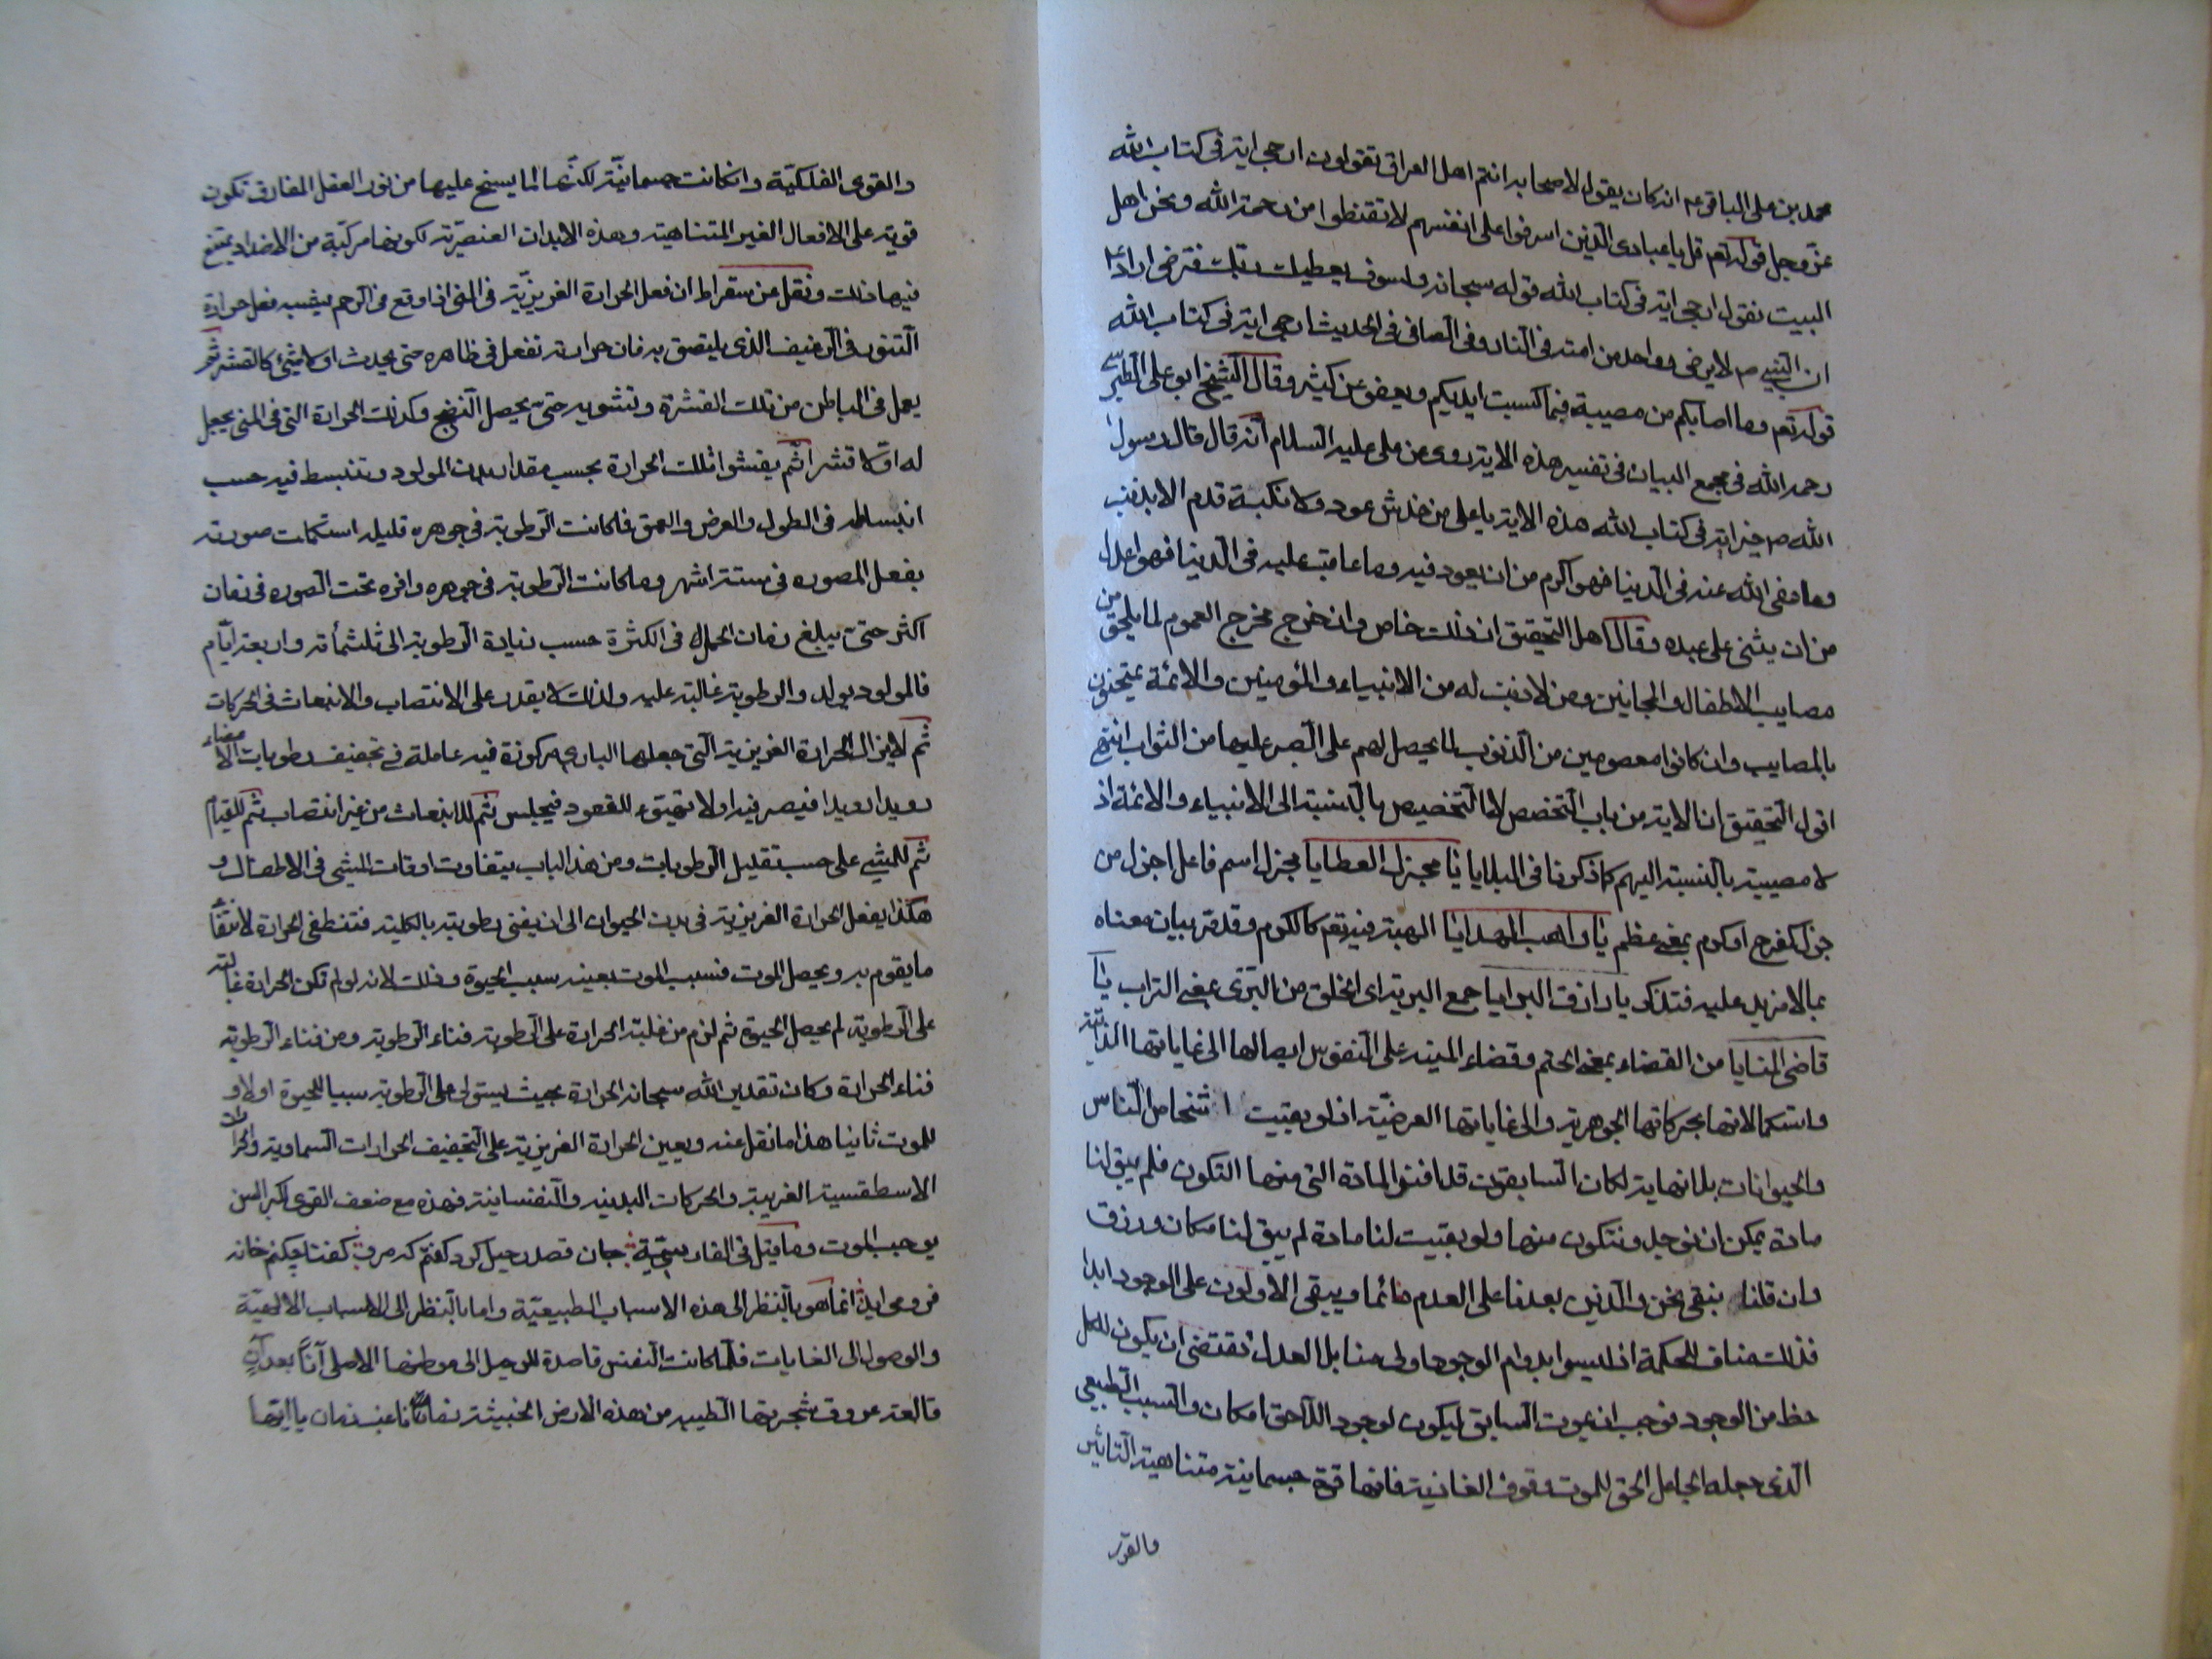 محمد بن على الباقر ع انه كان يقول لاصحابه انتم اهل العراق تقولون ارجى اية فى كتاب الله
عز وجل قوله تعم قل يا عبادى الذين اسرفوا على انفسهم لا تقنطوا من رحمة الله ونحن اهل
البيت نقول ارجى اية فى كتاب الله قوله سبحانه ولسوف يعطيك ربك فترضى اراد ع
ان النبى ص لا يرضى وواحد من امته فى النار وفى الصافى فى الحديث ارجى اية فى كتاب الله
قوله تعم وما اصابكم من مصيبة فبما كسبت ايديكم ويعفو عن كثير وقال الشيخ ابو على الطبرسى
رحمه الله فى مجمع البيان فى تفسير هذه الاية روى عن على عليه السلام انه قال قال رسول
الله ص خير اية فى كتاب الله هذه الاية يا على من خدش عود ولا نكبة قدم الا بذنب
وما عفى الله عنه فى الدنيا فهو اكرم من ان يعود فيه وما عاقب عليه فى الدنيا فهو اعدل
من ان يثنى على عبده وقال اهل التحقيق ان ذلك خاص وان خرج مخرج العموم لما يلحق من
مصايب الاطفال والمجانين ومن لا ذنب له من الانبياء والمؤمنين والائمة يمتحنون
بالمصايب وان كانوا معصومين من الذنوب لما يحصل لهم على الصبر عليها من الثواب انتهى
اقول التحقيق ان الاية من باب التخصص لا التخصيص بالنسبة الى الانبياء والائمة اذ
لا مصيبة بالنسبة اليهم كما ذكرنا فى البلايا يا مجزل العطايا مجزل اسم فاعل اجزل من
جزل كفرح او كرم بمعنى عظم يا واهب الهدايا الهبة فيه تعم كالكرم وقد مر بيان معناه
بما لا مزيد عليه فتذكر يا رازق البرايا جمع البرية اى الخلق من البرى بمعنى التراب يا
قاضى المنايا من القضاء بمعنى الحتم وقضاء المنية على النفوس ايصالها الى غاياتها الذاتية
واستكمالاتها بحركاتها الجوهرية والى غاياتها العرضية اذ لو بقيت اشخاص الناس
والحيوانات بلا نهاية لكان السابقون قد افنوا المادة التى منها التكون فلم يبق لنا
مادة يمكن ان نوجد ونتكون منها ولو بقيت لنا مادة لم يبق لنا مكان ورزق
وان قلنا نبقى نحن والذين بعدنا على العدم دائما ويبقى الاولون على الوجود ابدا
فذلك مناف للحكمة اذ ليسوا بدوام الوجود اولى منا بل العدل تقتضى ان يكون للكل
حظ من الوجود فوجب ان يموت السابق ليكون لوجود اللاحق امكان والسبب الطبيعى
الذى جعله الجاعل الحق للموت وقوف الغاذية فانها قوة جسمانية متناهية التاثير
والقوى
والقوى الفلكية وان كانت جسمانية لكنها لما يسنح عليها من نور العقل المفارق تكون
قوية على الافعال الغير المتناهية وهذه الابدان العنصرية لكونها مركبة من الاضداد يمتنع
فيها ذلك ونقل عن سقراط ان فعل الحرارة الغريزية فى المنى اذا وقع فى الرحم يشبه فعل حرارة
التنور فى الرغيف الذى يلتصق به فان حرارته تفعل فى ظاهره حتى يحدث اولا شئ كالقشر ثم
يعمل فى الباطن من تلك القشرة وتشويه حتى يحصل النضج وكذلك الحرارة التى فى المنى يجعل
له اولا قشرا ثم يفشوا تلك الحرارة بحسب مقدار بدن المولود وتنبسط فيه حسب
انبساطه فى الطول والعرض والعمق فلما كانت الرطوبة فى جوهره قليلة استكملت صورته
بفعل المصوره فى ستة اشهر وما كانت الرطوبة فى جوهره وافره تمت الصوره فى زمان
اكثر حتى يبلغ زمان الحمل فى الكثرة حسب زيادة الرطوبة الى ثلثمأة واربعة ايام
فالمولود يولد والرطوبة غالبة عليه ولذلك لا يقدر على الانتصاب والانبعاث فى الحركات
ثم لا يزال الحرارة الغريزية التى جعلها البارى مركوزة فيه عاملة فى تجفيف رطوبات الاعضاء
رويدا رويدا فيصير فيه اولا تهيؤ للقعود فيجلس ثم للانبعاث من غير انتصاب ثم للقيام
ثم للمشى على حسب تقليل الرطوبات ومن هذا الباب يتفاوت اوقات المشى فى الاطفال و
هكذا يفعل الحرارة الغريزية فى بدن الحيوان الى ان يفنى رطوبته بالكلية فتنطفى الحرارة لانتفاء
ما يقوم به ويحصل الموت فسبب الموت بعينه سبب الحيوة وذلك لانه لو لم تكن الحرارة غالبة
على الرطوبة لم يحصل الحيوة ثم لزم من غلبة الحرارة على الرطوبة فناء الرطوبة ومن فناء الرطوبة
فناء الحرارة وكان تقدير الله سبحانه الحرارة بحيث يستولى على الرطوبة سببا للحيوة اولا و
للموت ثانيا هذا ما نقل عنه ويعين الحرارة الغريزية على التجفيف الحرارات السماوية والحرارات
الاسطقسية الغريبة والحركات البدنية والنفسانية فهذه مع ضعف القوى لكبر السن
يوجب الموت وما قيل فى الفارسية جان قصد رحيل كرد گفتم كه مرو گفتا چكنم خانه
فرو مى ايد انما هو بالنظر الى هذه الاسباب الطبيعية واما بالنظر الى الاسباب الالهية
والوصول الى الغايات فلما كانت النفس قاصدة للرحيل الى موطنها الاصلى آنا بعد آن
قالعة عروق شجرتها الطيبة من هذه الارض الخبيثة زمانا غب زمان يا ايتها